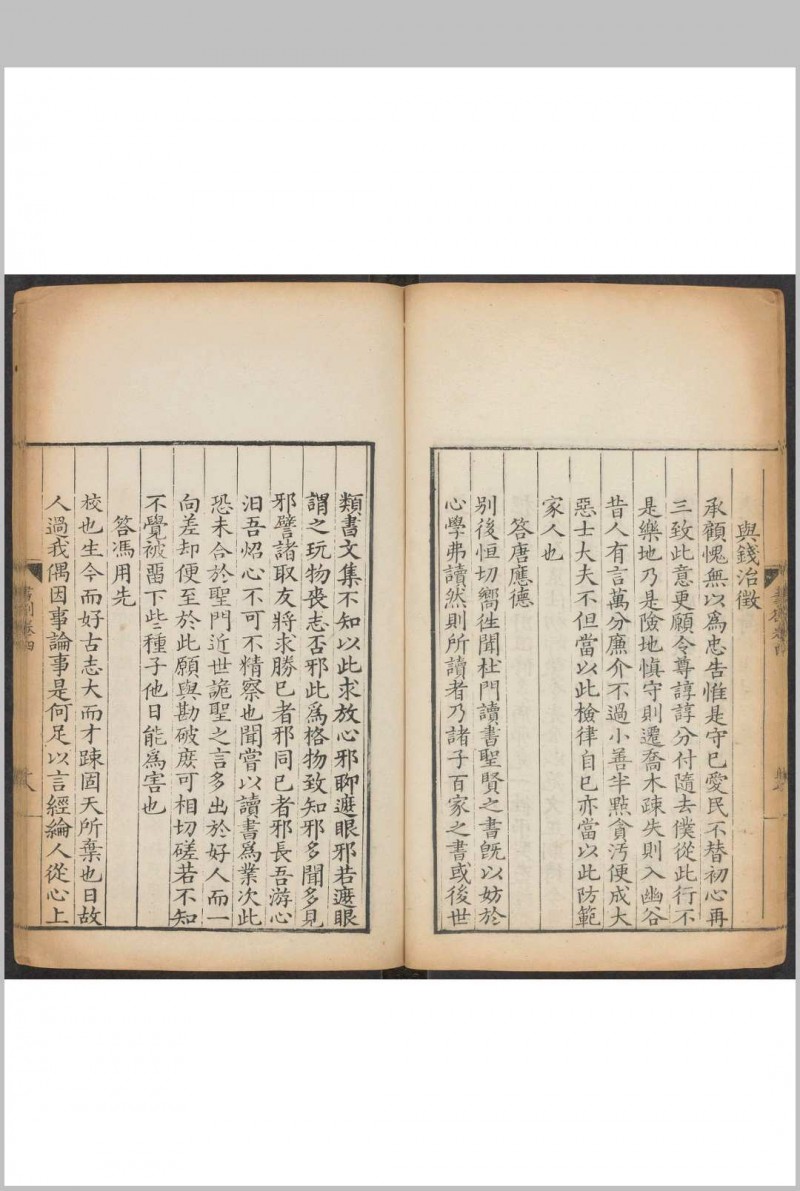 與錢治徵
承顧愧無以爲忠告惟是守己愛民不替初心再
三致此意更願令尊諄諄分付隨去僕從此行不
是樂地乃是險地慎守則遷喬木疎失則入幽谷
昔人有言萬分廉介不過小善半點貪汚便成大
惡士大夫不但當以此檢律自已亦當以此防範
家人也
答唐應德
別後恒切嚮徃聞杜門讀書聖賢之書旣以妨於
心學弗讀然則所讀者乃諸子百家之書或後世
類書文集不知以此求放心邪聊遮眼邪若遮眼
謂之玩物喪志否邪此爲格物致知邪多聞多見
邪譬諸取友將求勝已者邪同已者邪長吾游心
汨吾炤心不可不精察也聞嘗以讀書爲業次此
恐未合於聖門近世詭聖之言多出於好人而一
向差却便至於此願與勘破庶可相切磋若不知
不覺被畱下些種子他日能爲害也
答馮用先
校也生今而好古志大而才疎固天所棄也日故
人過我偶因事論事是何足以言經綸人從心上